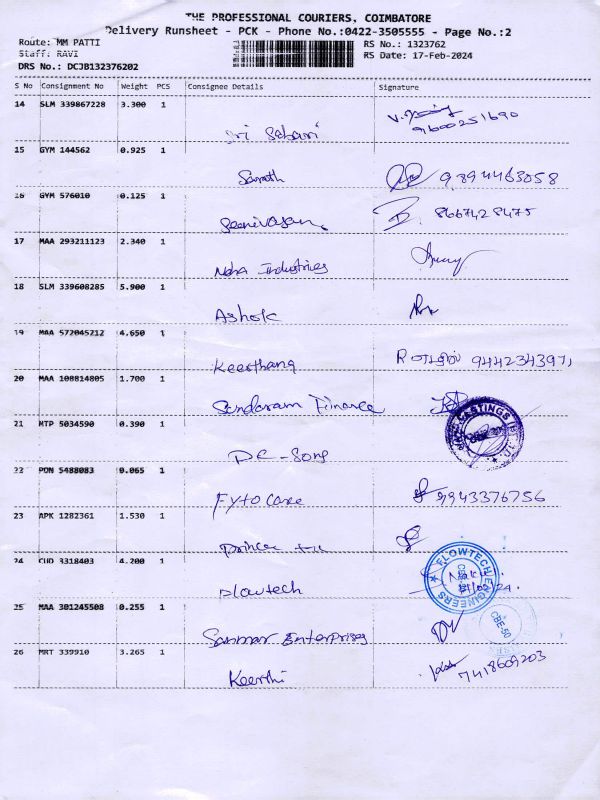 THE PROFESSIONAL COURIERS, COIMBATORE
Delivery Runsheet - PCK - Phone No.:0422-3505555 - Page No.:2
Route: MM PATTI
Staff: RAVI
DRS No.: DCJB132376202
RS No.: 1323762
RS Date: 17-Feb-2024
S No Consignment No Weight PCS Consignee Details Signature
14 SLM 339867228 3.300 1
Sri Sabari 9600251690
15 GYM 144562 0.925 1
Sarath 9894463058
16 GYM 576010 0.125 1
Seenivasan 8667428475
17 MAA 293211123 2.340 1
Neha Industries
18 SLM 339608285 5.900 1
Ashok
19 MAA 572045212 4.650 1
Keerthana R 9442343971
20 MAA 108814805 1.700 1
Sundaram Finance
21 MTP 5034590 0.390 1
CASTINGS
22 PDN 5488083 0.065 1
Fyto care 9943376756
23 APK 1282361 1.530 1
24 CHD 3318403 4.200 1
Flowtech
FLOWTECH ENGINEERS
25 MAA 301245508 0.255 1
Sanmar Enterprises
CBE-50
26 MRT 339910 3.265 1
Keerthi 7418609203